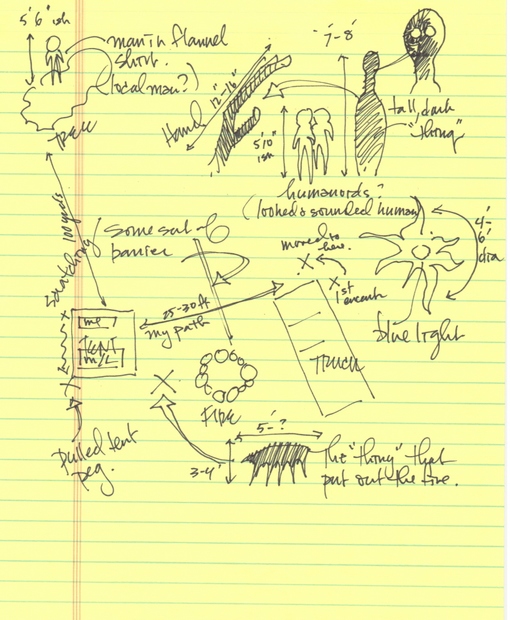 5'6"ish
man in flannel
shirt.
(local man?)
TREE
Hand
12"-16"
7'-8'
5'10"
ish
tall, dark
"thing"
humanoids?
(looked & sounded human)
moved to
here.
1st
encounter
4'-
6'
dia
blue light
some sort of
barrier
100 yards
25-30 ft
my path
me
TENT
M/L
TRUCK
FIRE
Pulled tent
peg.
5'-?
3-4'
The "thing" that
put out the fire.